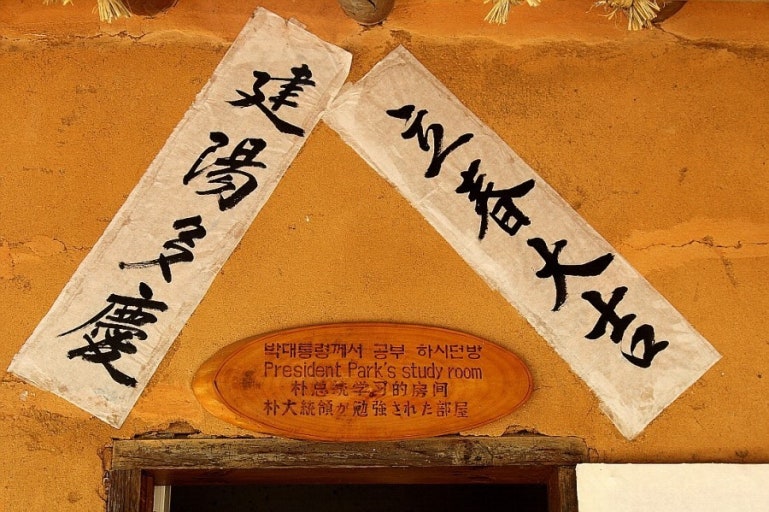 建陽多慶
立春大吉
박대통령께서 공부 하시던방
President Park's study room
朴总统学习的房间
朴大統領が勉強された部屋